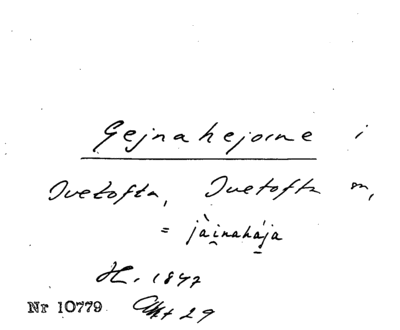 Gejnahejorne i
Ivetofta, Ivetofta sn,
= jàinahája
H. 1847
Nr 10779 Akt 29